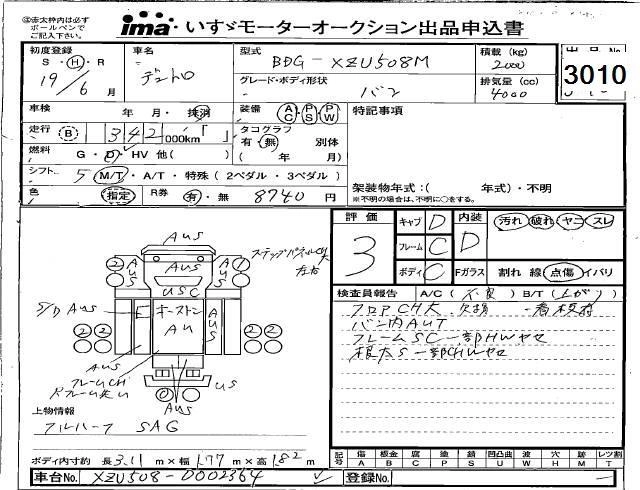 ※赤太枠内は必ず
ボールペンで
ご記入下さい。
ima いすゞモーターオークション出品申込書
初度登録 S・H・R 19/6月
車名 デュトロ
型式 BDG-XZU508M
グレード・ボディ形状 バン
積載(kg) 2000
排気量(cc) 4000
3010
車検 年・月・抹消
装備 AC PS PW
特記事項
走行 B 342 000km「 」
タコグラフ 有・無 別体
( 年 月)
燃料 G・D・HV 他( )
シフト 5 M/T・A/T・特殊(2ペダル・3ペダル)
色 指定 R券 有・無 8740円
架装物年式:( 年式)・不明
※不明の場合は、不明に○をする。
評価 3
キャブ D
フレーム C
ボディ C
内装 D
汚れ 破れ ヤニ スレ
Fガラス 割れ 線 点傷 イバリ
検査員報告 A/C(不良) B/T(上がり)
フロアCH大
バン内AUT
フレームSC一部HWヤセ
根太S一部CHWヤセ
AUS
AUS
USC
オーストン
AU
AUS
S/D AUS
US
AUS
フレームCH
左右
2
2
2 2
2 2
上物情報
フルハーフ SAG
ボディ内寸約 長3.11m×幅1.77m×高1.82m
記号 傷A 板金B 腐C 塗P 錆S 凹凸曲U 波W 穴H 跡M レツ割T
車台No. XZU508-0002364
登録No.